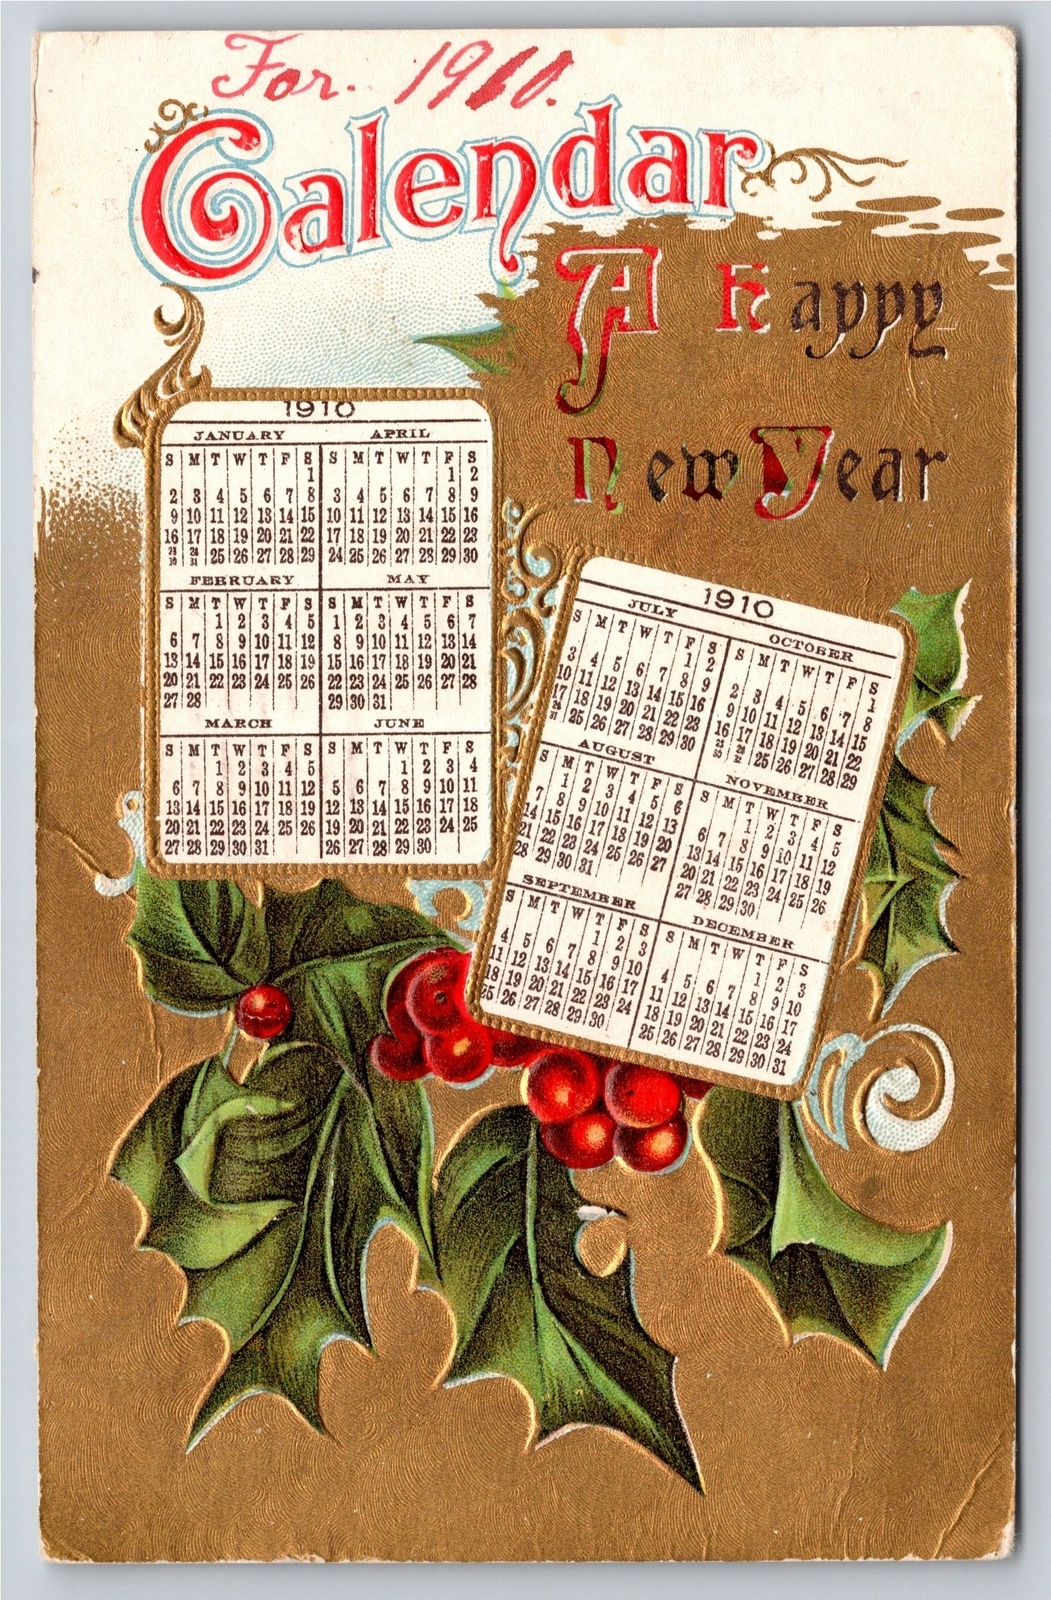 For. 1910.
Calendar
A Happy
New Year
1910
JANUARY
S M T W T F S
1
2 3 4 5 6 7 8
9 10 11 12 13 14 15
16 17 18 19 20 21 22
23 24 25 26 27 28 29
30 31
APRIL
S M T W T F S
1 2
3 4 5 6 7 8 9
10 11 12 13 14 15 16
17 18 19 20 21 22 23
24 25 26 27 28 29 30
FEBRUARY
S M T W T F S
1 2 3 4 5
6 7 8 9 10 11 12
13 14 15 16 17 18 19
20 21 22 23 24 25 26
27 28
MAY
S M T W T F S
1 2 3 4 5 6 7
8 9 10 11 12 13 14
15 16 17 18 19 20 21
22 23 24 25 26 27 28
29 30 31
MARCH
S M T W T F S
1 2 3 4 5
6 7 8 9 10 11 12
13 14 15 16 17 18 19
20 21 22 23 24 25 26
27 28 29 30 31
JUNE
S M T W T F S
1 2 3 4
5 6 7 8 9 10 11
12 13 14 15 16 17 18
19 20 21 22 23 24 25
26 27 28 29 30
1910
JULY
S M T W T F S
1 2
3 4 5 6 7 8 9
10 11 12 13 14 15 16
17 18 19 20 21 22 23
24 25 26 27 28 29 30
31
OCTOBER
S M T W T F S
1
2 3 4 5 6 7 8
9 10 11 12 13 14 15
16 17 18 19 20 21 22
23 24 25 26 27 28 29
30 31
AUGUST
S M T W T F S
1 2 3 4 5 6
7 8 9 10 11 12 13
14 15 16 17 18 19 20
21 22 23 24 25 26 27
28 29 30 31
NOVEMBER
S M T W T F S
1 2 3 4 5
6 7 8 9 10 11 12
13 14 15 16 17 18 19
20 21 22 23 24 25 26
27 28 29 30
SEPTEMBER
S M T W T F S
1 2 3
4 5 6 7 8 9 10
11 12 13 14 15 16 17
18 19 20 21 22 23 24
25 26 27 28 29 30
DECEMBER
S M T W T F S
1 2 3
4 5 6 7 8 9 10
11 12 13 14 15 16 17
18 19 20 21 22 23 24
25 26 27 28 29 30 31